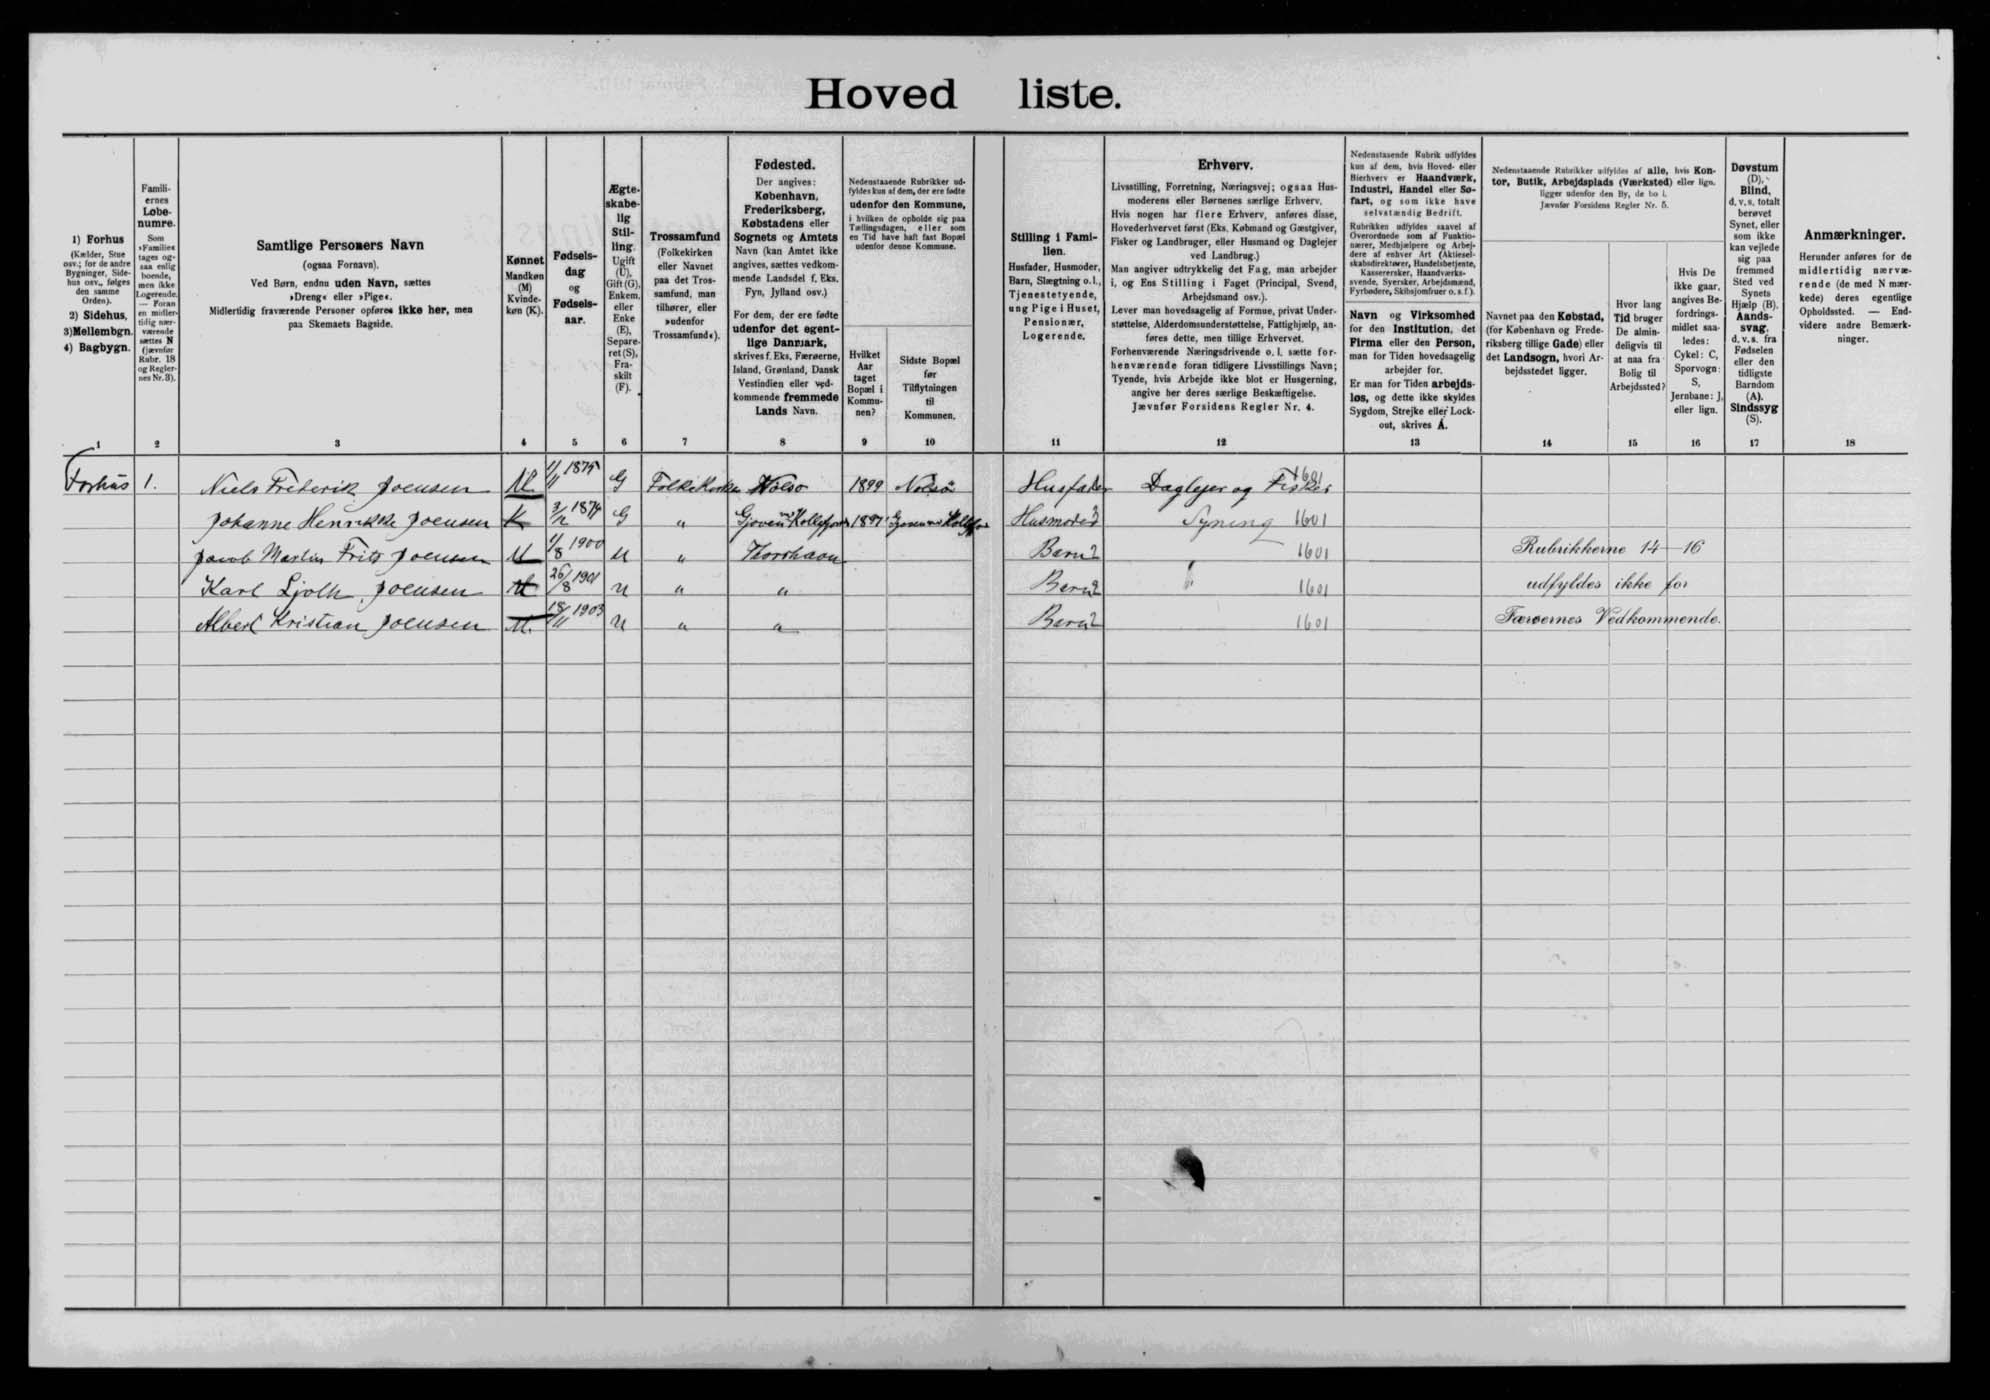 Hoved liste.
1) Forhus
(Kælder, Stue
osv.; for de andre
Bygninger, Side-
hus osv., følges
den samme
Orden).
2) Sidehus,
3) Mellembgn.
4) Bagbygn.
1
Famili-
ernes
Løbe-
numre.
Som
»Familie«
tages og-
saa enlig
boende,
men ikke
Logerende.
— Foran
en midler-
tidig nær-
værende
sættes N
(jævnfør
Rubr. 18
og Regler-
nes Nr. 3).
2
Samtlige Personers Navn
(ogsaa Fornavn).
Ved Børn, endnu uden Navn, sættes
»Dreng« eller »Pige«.
Midlertidig fraværende Personer opføres ikke her, men
paa Skemaets Bagside.
3
Kønnet
Mandkøn
(M)
Kvinde-
køn (K).
4
Fødsels-
dag
og
Fødsels-
aar.
5
Ægte-
skabe-
lig
Stil-
ling.
Ugift
(U),
Gift (G),
Enkem.
eller
Enke
(E),
Separe-
ret (S),
Fra-
skilt
(F).
6
Trossamfund
(Folkekirken
eller Navnet
paa det Tros-
samfund, man
tilhører, eller
»udenfor
Trossamfund«).
7
Fødested.
Der angives:
København,
Frederiksberg,
Købstadens eller
Sognets og Amtets
Navn (kan Amtet ikke
angives, sættes vedkom-
mende Landsdel f. Eks.
Fyn, Jylland osv.)
For dem, der ere fødte
udenfor det egent-
lige Danmark,
skrives f. Eks. Færøerne,
Island, Grønland, Dansk
Vestindien eller ved-
kommende fremmede
Lands Navn.
8
Nedenstaaende Rubrikker ud-
fyldes kun af dem, der ere fødte
udenfor den Kommune,
i hvilken de opholde sig paa
Tællingsdagen, eller som
en Tid have haft fast Bopæl
udenfor denne Kommune.
Hvilket
Aar
taget
Bopæl i
Kommu-
nen?
9
Sidste Bopæl
før
Tilflytningen
til
Kommunen.
10
Stilling i Fami-
lien.
Husfader, Husmoder,
Barn, Slægtning o. l.,
Tjenestetyende,
ung Pige i Huset,
Pensionær,
Logerende.
11
Erhverv.
Livsstilling, Forretning, Næringsvej; ogsaa Hus-
moderens eller Børnenes særlige Erhverv.
Hvis nogen har flere Erhverv, anføres disse,
Hovederhvervet først (Eks. Købmand og Gæstgiver,
Fisker og Landbruger, eller Husmand og Daglejer
ved Landbrug.)
Man angiver udtrykkelig det Fag, man arbejder
i, og Ens Stilling i Faget (Principal, Svend,
Arbejdsmand osv.).
Lever man hovedsagelig af Formue, privat Under-
støttelse, Alderdomsunderstøttelse, Fattighjælp, an-
føres dette, men tillige Erhvervet.
Forhenværende Næringsdrivende o. l. sætte for-
henværende foran tidligere Livsstillings Navn;
Tyende, hvis Arbejde ikke blot er Husgerning,
angive her deres særlige Beskæftigelse.
Jævnfør Forsidens Regler Nr. 4.
12
Nedenstaaende Rubrik udfyldes
kun af dem, hvis Hoved- eller
Bierhverv er Haandværk,
Industri, Handel eller Sø-
fart, og som ikke have
selvstændig Bedrift.
Rubrikken udfyldes saavel af
Overordnede som af Funktio-
nærer, Medhjælpere og Arbej-
dere af enhver Art (Aktiesel-
skabsdirektører, Handelsbetjente,
Kassererske, Haandværks-
svende, Syersker, Arbejdsmænd,
Fyrbødere, Skibsjomfruer o. s. f.).
Navn og Virksomhed
for den Institution, det
Firma eller den Person,
man for Tiden hovedsagelig
arbejder for.
Er man for Tiden arbejds-
løs, og dette ikke skyldes
Sygdom, Strejke eller Lock-
out, skrives A.
13
Nedenstaaende Rubrikker udfyldes af alle, hvis Kon-
tor, Butik, Arbejdsplads (Værksted) eller lign.
ligger udenfor den By, de bo i.
Jævnfør Forsidens Regler Nr. 5.
Navnet paa den Købstad,
(for København og Frede-
riksberg tillige Gade) eller
det Landsogn, hvori Ar-
bejdsstedet ligger.
14
Hvor lang
Tid bruger
De almin-
deligvis til
at naa fra
Bolig til
Arbejdssted?
15
Hvis De
ikke gaar,
angives Be-
fordrings-
midlet saa-
ledes:
Cykel: C,
Sporvogn:
S,
Jernbane: J,
eller lign.
16
Døvstum
(D),
Blind,
d. v. s. totalt
berøvet
Synet, eller
som ikke
kan vejlede
sig paa
fremmed
Sted ved
Synets
Hjælp (B).
Aands-
svag,
d. v. s. fra
Fødselen
eller den
tidligste
Barndom
(A).
Sindssyg
(S).
17
Anmærkninger.
Herunder anføres for de
midlertidig nærvæ-
rende (de med N mær-
kede) deres egentlige
Opholdssted. — End-
videre andre Bemærk-
ninger.
18
Forhus 1. Niels Frederik Joensen M 1/11 1875 G Folkekirken Nolsø 1899 Nolsø Husfader Daglejer og Fisker 1601
Johanne Henrikke Joensen K 3/2 1879 G " Husmoder Syning 1601
Jacob Martin Frits Joensen M 1/8 1900 U " Thorshavn Barn 1601 Rubrikkerne 14—16
Karl Joensen M 26/8 1901 U " " Barn 1601 udfyldes ikke for
Albert Kristian Joensen M. 18/11 1903 U " " Barn 1601 Færøernes Vedkommende.